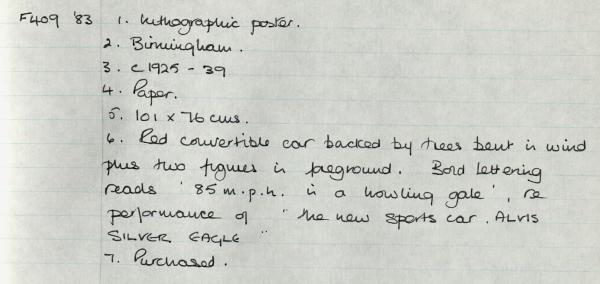 F409 '83 1. Lithographic poster.
2. Birmingham.
3. c 1925 - 39
4. Paper.
5. 101 x 76 cms.
6. Red convertible car backed by trees bent in wind
plus two figures in foreground. Bold lettering
reads '85 m.p.h. in a howling gale', re
performance of "the new sports car. ALVIS
SILVER EAGLE"
7. Purchased.